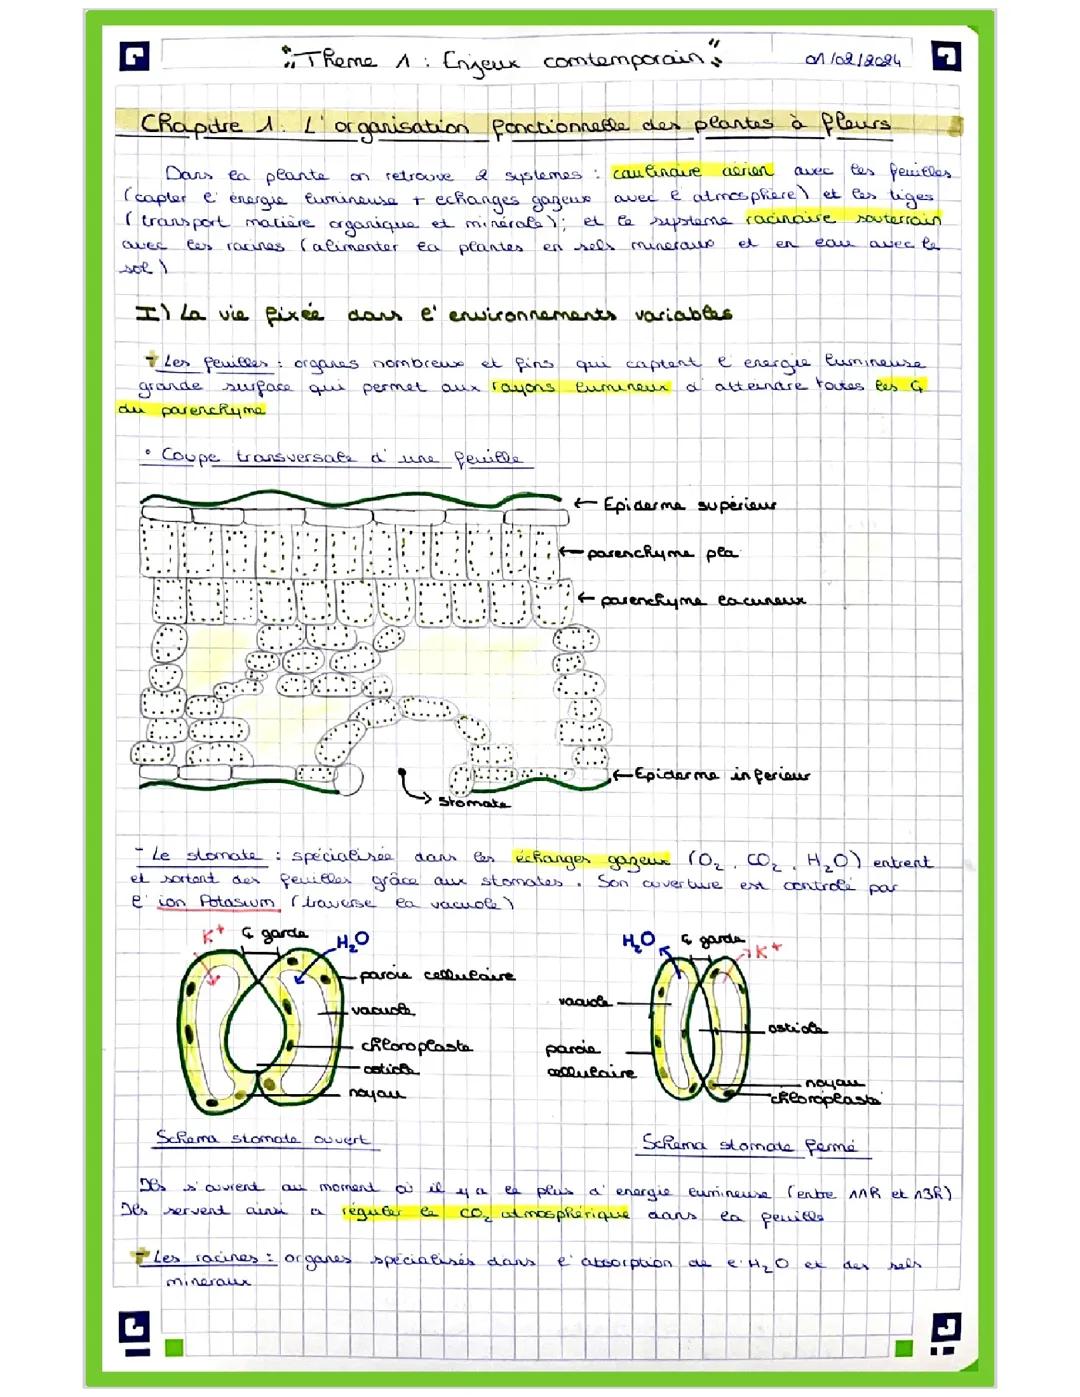 "Theme 1 : Enjeux comtemporain" 01/02/2024
Chapitre 1 : L'organisation fonctionnelle des plantes à fleurs
Dans la plante on retrouve 2 systemes : caulinaire aérien avec les feuilles
(capter l'énergie lumineuse + echanges gazeux avec l'atmosphère) et les tiges
(transport matière organique et minérale); et le systeme racinaire souterrain
avec les racines (alimenter la plantes en sels mineraux et en eau avec le
sol)
I) La vie fixée dans l'environnements variables
- Les feuilles : organes nombreux et fins qui captent l'energie lumineuse
grande surface qui permet aux rayons lumineux d'atteindre toutes les C
du parenchyme
• Coupe transversale d'une feuille
← Epiderme supérieur
← parenchyme pla
← parenchyme lacuneux
← Epiderme inferieur
→ stomate
- Le stomate : spécialisée dans les échanges gazeux (O₂, CO₂, H₂O) entrent
et sortent des feuilles grâce aux stomates. Son ouverture est controlé par
l'ion Potasium (traverse la vacuole)
K⁺ C garde H₂O
paroie cellulaire
vacuole
chloroplaste
ostiole
noyau
Schema stomate ouvert
H₂O C garde K⁺
vacuole
ostiole
paroie
cellulaire
noyau
chloroplaste
Schema stomate fermé
Ils s'ouvrent au moment où il y a le plus d'energie lumineuse (entre 11h et 13h)
Ils servent ainsi a réguler le CO₂ atmosphérique dans la feuille
- Les racines : organes spécialisés dans l'absorption de l'H₂O et des sels
mineraux